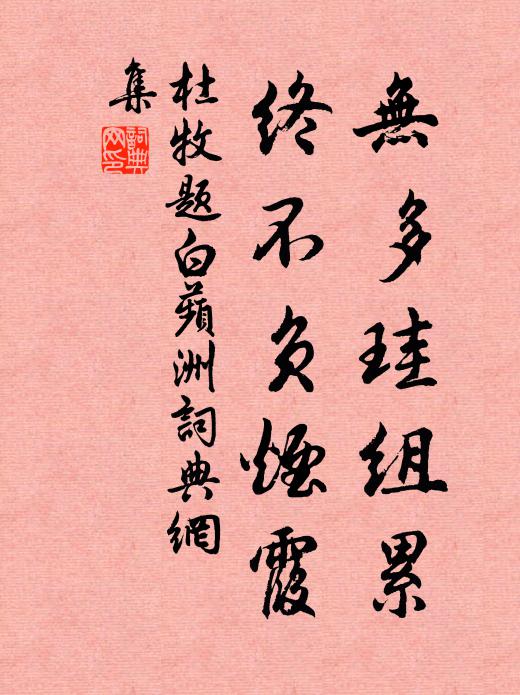 無多珪組累
終不負煙霞
杜牧題白蘋洲詞典網
集
詞典
网印